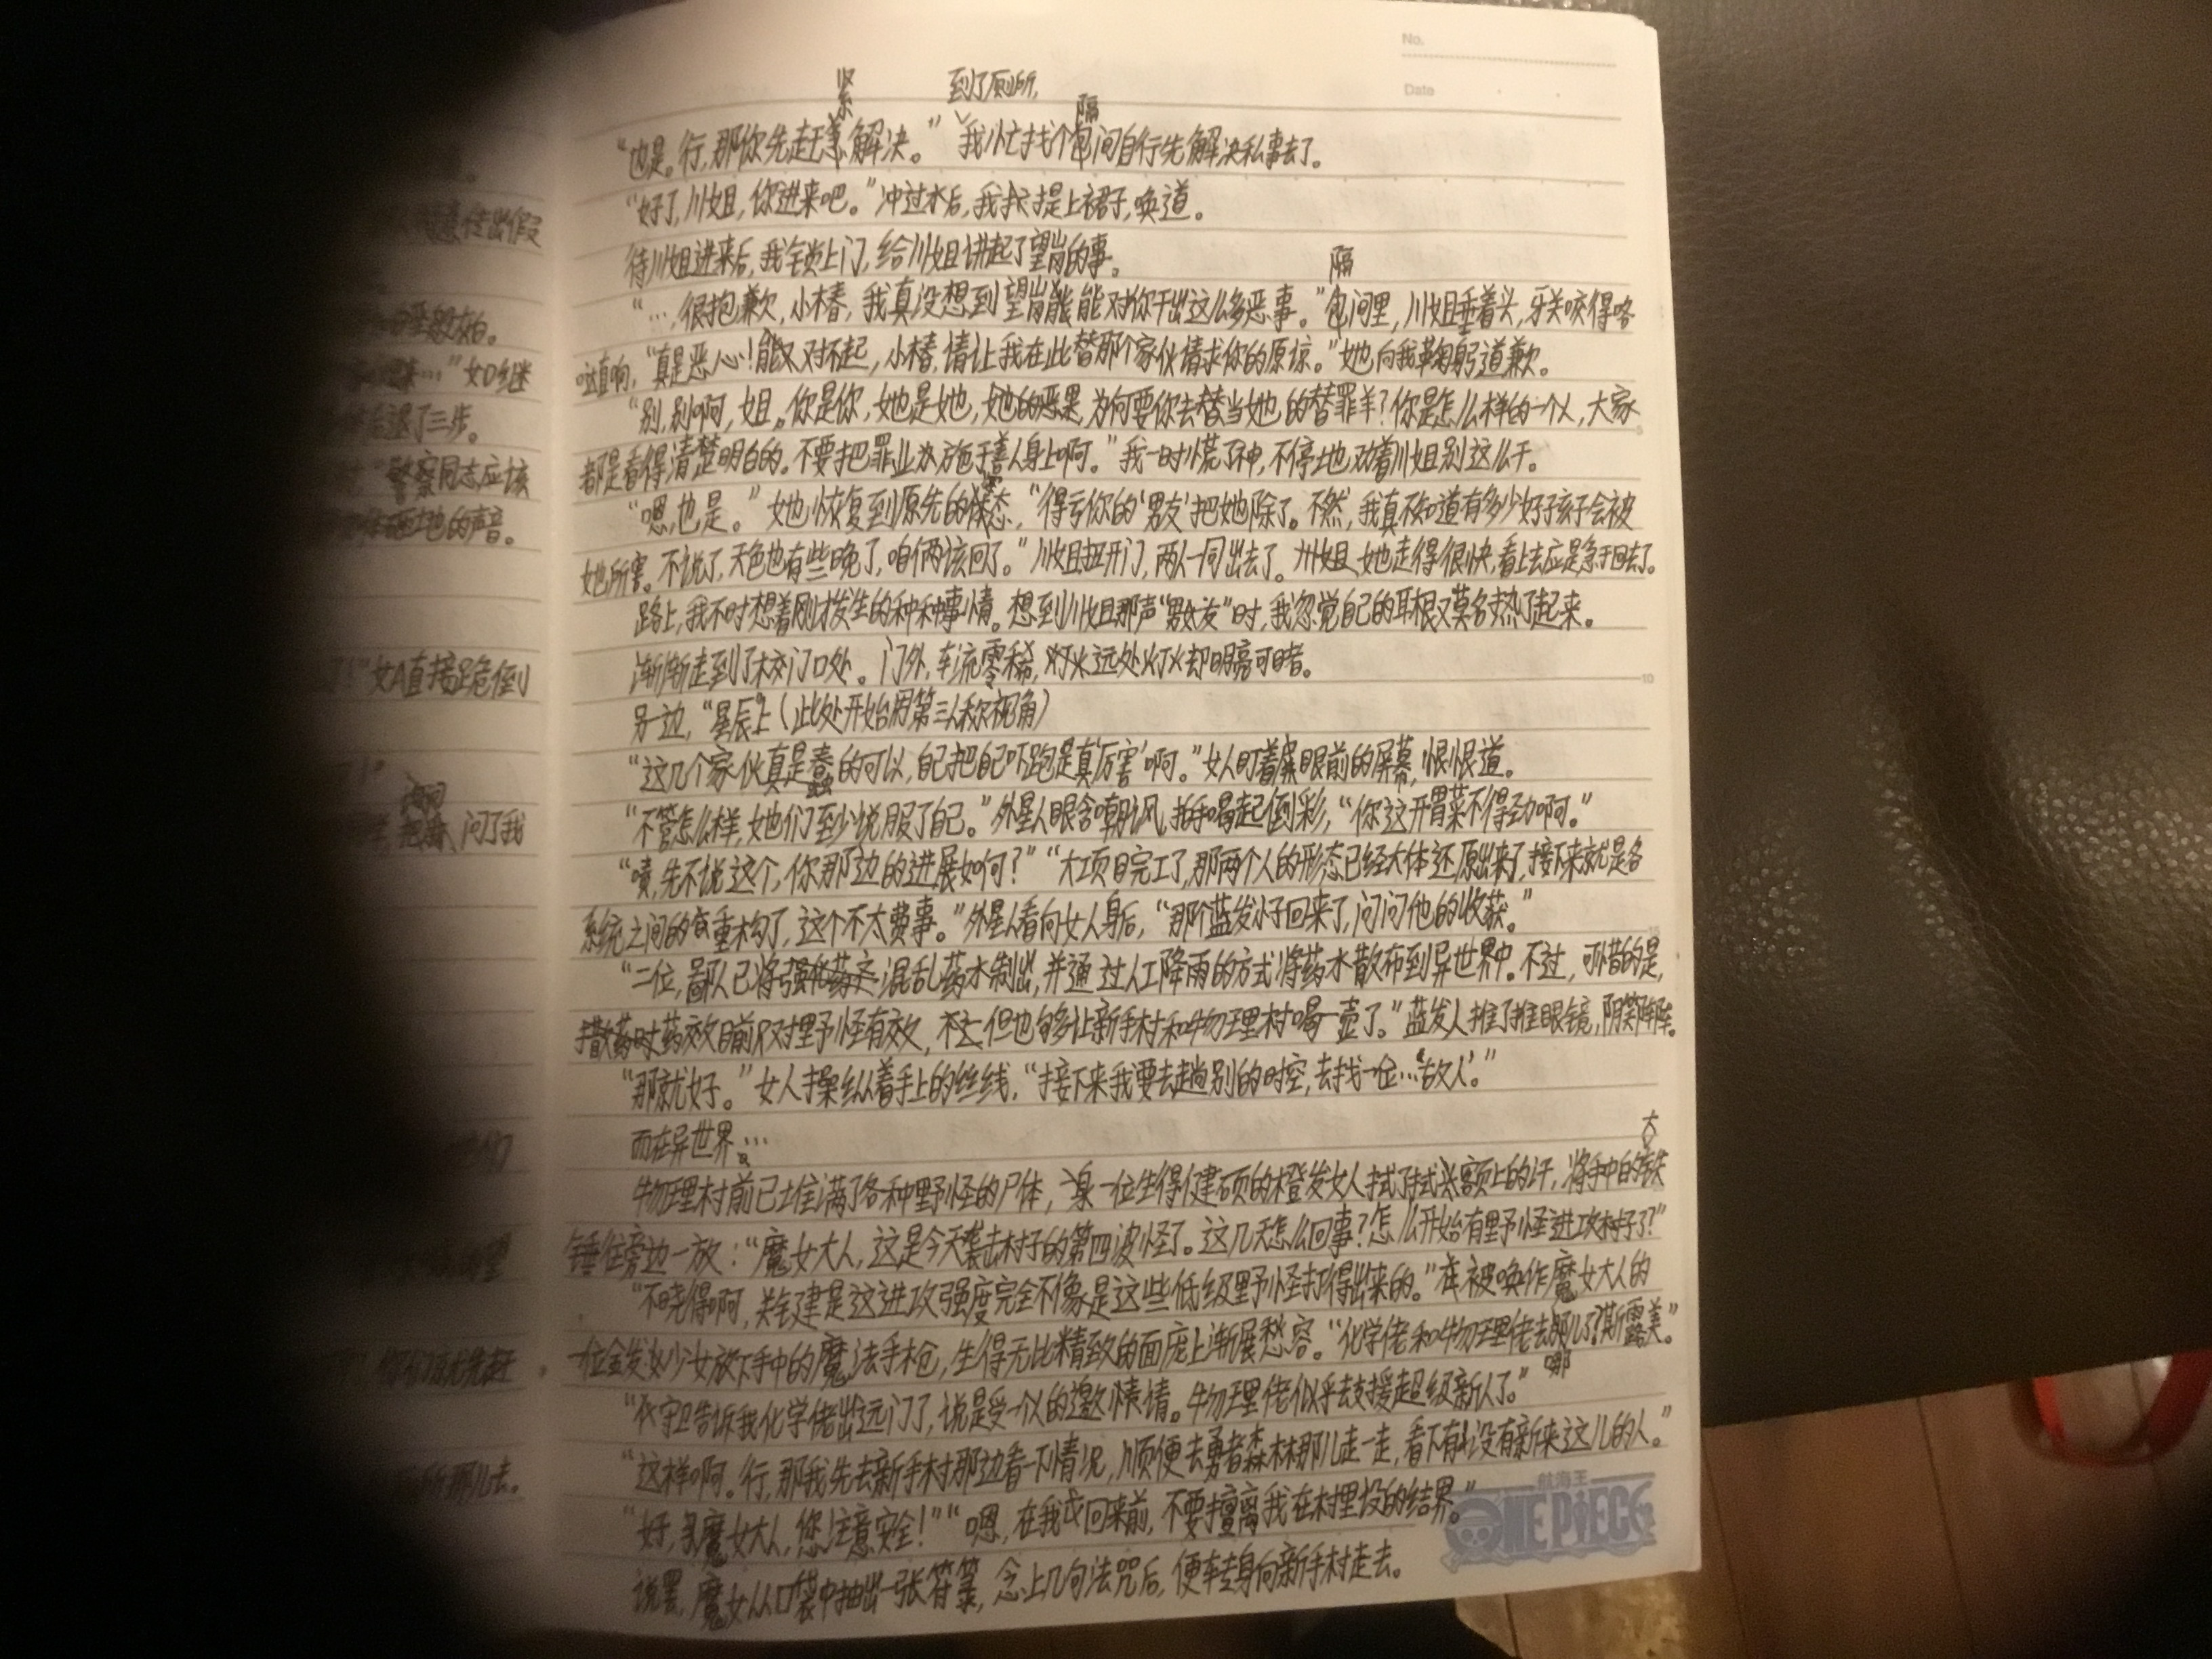 No.
Date
到了厕所,
紧
隔
“也是。行,那你先赶紧解决。”我忙找个隔间自行先解决私事去了。
“好了,川姐,你进来吧。”冲过水后,我才提上裙子,唤道。
待川姐进来后,我锁上门,给川姐讲起了望岗的事。
隔
“…,很抱歉,小椿,我真没想到望岗能对你干出这么多恶事。”隔间里,川姐垂着头,牙关咬得咯
哒直响,“真是恶心!对不起,小椿,请让我在此替那个家伙请求你的原谅。”她向我鞠躬道歉。
“别,别啊,姐。你是你,她是她,她的恶果,为何要你去当她的替罪羊?你是怎么样的一个人,大家
都是看得清楚明白的。不要把罪业施于善人身上啊。”我一时慌了神,不停地劝着川姐别这么干。
“嗯,也是。”她恢复到原先的状态,“得亏你的‘男友’把她除了。不然,我真不知道有多少好孩子会被
她所害。不说了,天色也有些晚了,咱俩该回了。”川姐扭开门,两人一同出去了。川姐她走得很快,看上去应是急于回去了。
路上,我不时想着刚才发生的种种事情。想到川姐那声“男友”时,我忽觉自己的耳根又莫名热了起来。
渐渐走到了校门口处。门外,车流零稀,远处灯火却明亮可睹。
另一边,“星辰”上(此处开始用第三人称视角)
“这几个家伙真是蠢的可以,自己把自己吓跑是真‘厉害’啊。”女人盯着眼前的屏幕,恨恨道。
“不管怎么样,她们至少说服了自己。”外星人眼含嘲讽,拍手喝起倒彩,“你这开胃菜不得劲啊。”
“啧,先不说这个,你那边的进展如何?”“大工项目完工了,那两个人的形态已经大体还原出来了,接下来就是各
系统之间的重构了,这个不太费事。”外星人看向女人身后,“那个蓝发小子回来了,问问他的收获。”
“二位,鄙人已将混乱药水制出,并通过人工降雨的方式将药水散布到异世界中。不过,可惜的是,
药效目前只对野怪有效,但也够让新手村和物理村喝一壶了。”蓝发人推了推眼镜,阴笑阵阵。
“那就好。”女人操纵着手上的丝线,“接下来我要去趟别的时空,去找一位…‘故人’。”
而在异世界…
大
物理村前已堆满了各种野怪的尸体,一位生得健硕的橙发女人拭了拭额上的汗,将手中的大铁
锤往旁边一放:“魔女大人,这是今天袭击村子的第四波怪了。这几天怎么回事?怎么开始有野怪进攻村子了?”
“不晓得啊,关键是这进攻强度完全不像是这些低级野怪打得出来的。”被唤作魔女大人的
一位金发少女放下手中的魔法手枪,生得无比精致的面庞上渐展愁容。“化学佬和物理佬去哪儿了?斯露美。”
哪
“守卫告诉我化学佬出远门了,说是受一人的邀请。物理佬似乎去支援超级新人了。”
“这样啊。行,那我先去新手村那边看一下情况,顺便去勇者森林那儿走一走,看下有没有新来这儿的人。”
“好,魔女大人,您注意安全!”“嗯,在我回来前,不要擅离我在村里设的结界。”
说罢,魔女从口袋中抽出一张符箓,念上几句法咒后,便转身向新手村走去。
航海王
ONE PIECE
传出假
…”女D继
后退了三步。
警察同志应该
地的声音。
”女A直接跪倒
问了我
那儿去。